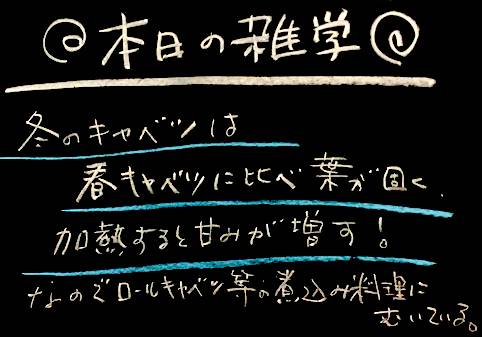 本日の雑学
冬のキャベツは
春キャベツに比べ葉が固く、
加熱すると甘みが増す!
なのでロールキャベツ等の煮込み料理に
むいている。